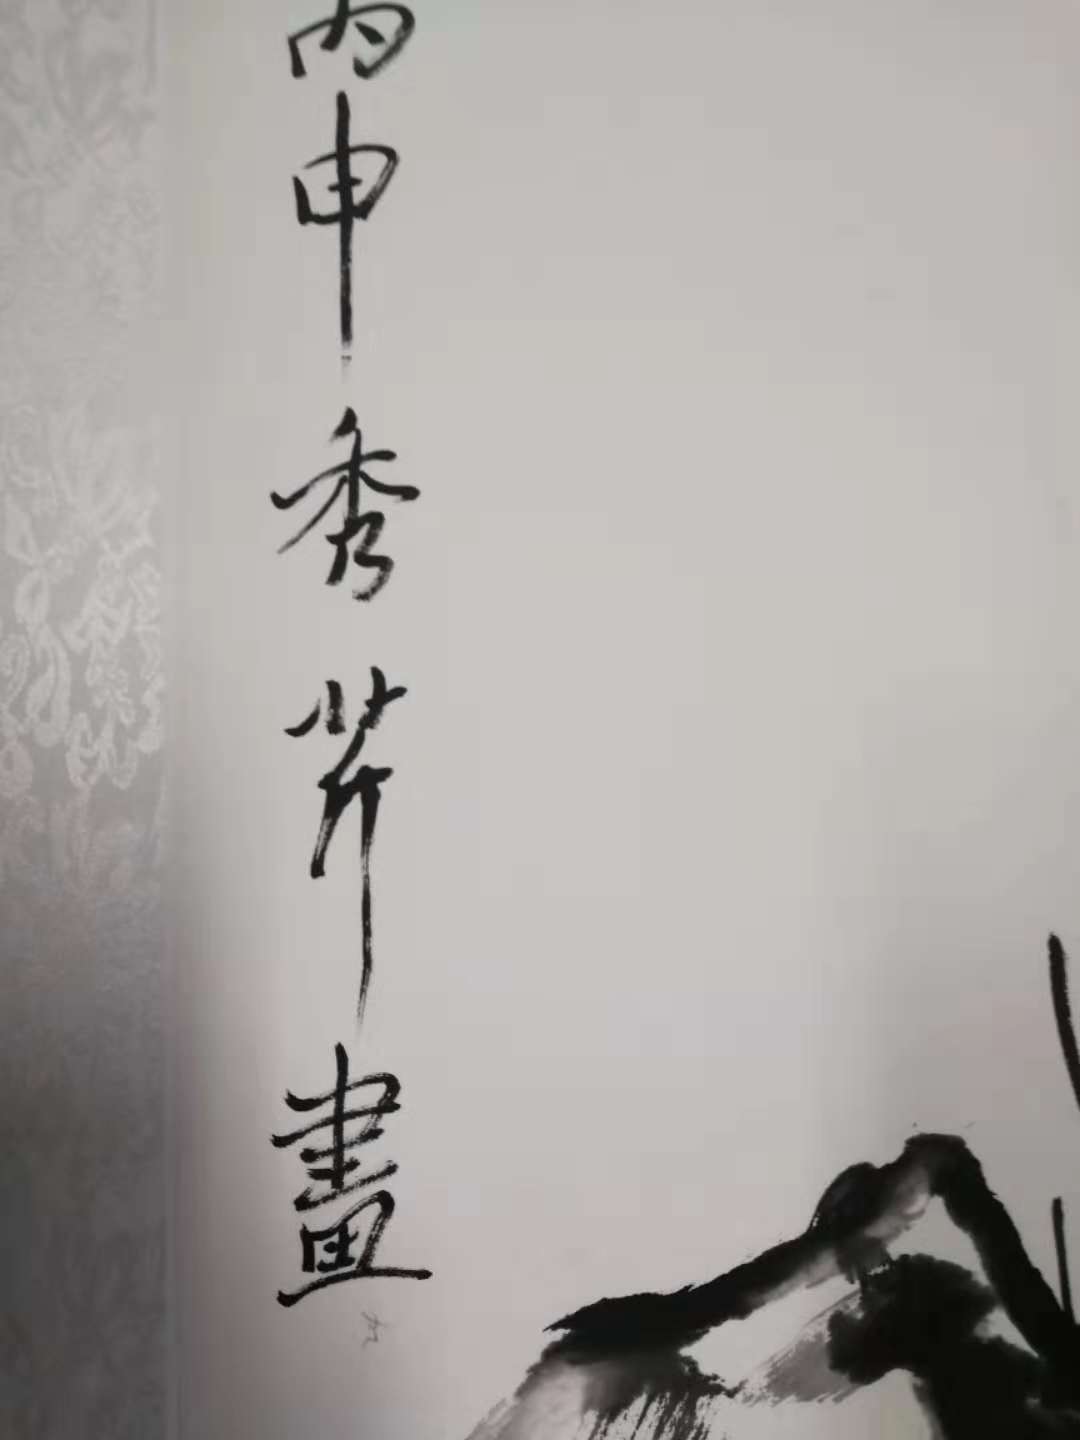 丙申秀芹畫